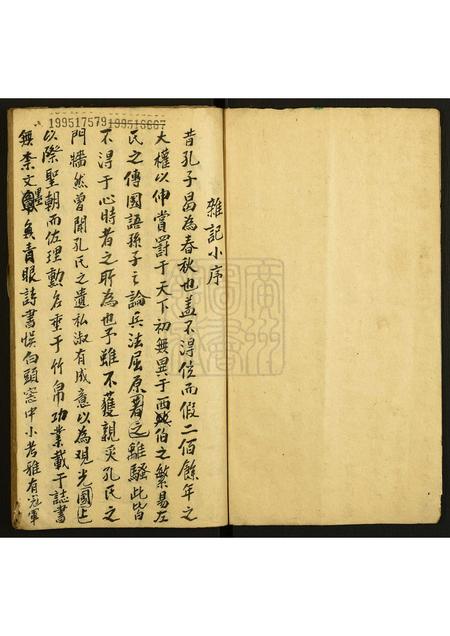 199517579 199516667
雜記小序
昔孔子曷為春秋也盖不得位而假二佰餘年之
大權以伸賞罰于天下初無異于西伯之繫易左
民之傳國語孫子之論兵法屈原著之離騷此皆
不得于心時者之所為也予雖不獲親炙孔氏之
門墻然曾聞孔氏之遺私淑有成意以為观光國上
以際聖朝而佐理勲名垂于竹帛功業載于誌書
無柰文墨負青眼詩書悮白頭窓中小考雅有冠軍